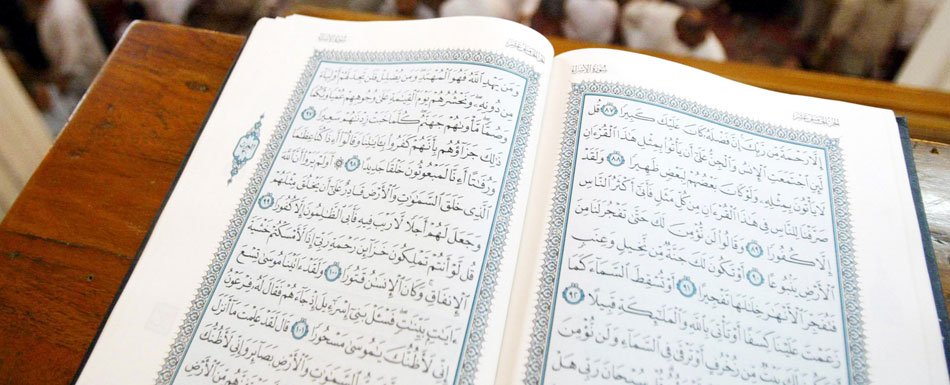 سُورَةُ الإِسۡرَاءِ
الجُزۡءُ الخَامِسَ عَشَرَ
إِلَّا رَحۡمَةٗ مِّن رَّبِّكَۚ إِنَّ فَضۡلَهُۥ كَانَ عَلَيۡكَ كَبِيرٗا ٨٧ قُل
لَّئِنِ ٱجۡتَمَعَتِ ٱلۡإِنسُ وَٱلۡجِنُّ عَلَىٰٓ أَن يَأۡتُواْ بِمِثۡلِ هَٰذَا ٱلۡقُرۡءَانِ
لَا يَأۡتُونَ بِمِثۡلِهِۦ وَلَوۡ كَانَ بَعۡضُهُمۡ لِبَعۡضٖ ظَهِيرٗا ٨٨ وَلَقَدۡ
صَرَّفۡنَا لِلنَّاسِ فِي هَٰذَا ٱلۡقُرۡءَانِ مِن كُلِّ مَثَلٖ فَأَبَىٰٓ أَكۡثَرُ ٱلنَّاسِ
إِلَّا كُفُورٗا ٨٩ وَقَالُواْ لَن نُّؤۡمِنَ لَكَ حَتَّىٰ تَفۡجُرَ لَنَا مِنَ
ٱلۡأَرۡضِ يَنۢبُوعًا ٩٠ أَوۡ تَكُونَ لَكَ جَنَّةٞ مِّن نَّخِيلٖ وَعِنَبٖ
فَتُفَجِّرَ ٱلۡأَنۡهَٰرَ خِلَٰلَهَا تَفۡجِيرًا ٩١ أَوۡ تُسۡقِطَ ٱلسَّمَآءَ كَمَا
زَعَمۡتَ عَلَيۡنَا كِسَفًا أَوۡ تَأۡتِيَ بِٱللَّهِ وَٱلۡمَلَٰٓئِكَةِ قَبِيلًا ٩٢
مِّن زُخۡرُفٍ أَوۡ تَرۡقَىٰ فِي ٱلسَّمَآءِ وَلَن نُّؤۡمِنَ
سُبۡحَانَ رَبِّي هَلۡ
الجُزۡءُ الخَامِسَ عَشَرَ
سُورَةُ الإِسۡرَاءِ
وَمَن يَهۡدِ ٱللَّهُ فَهُوَ ٱلۡمُهۡتَدِۖ وَمَن يُضۡلِلۡ فَلَن تَجِدَ لَهُمۡ أَوۡلِيَآءَ
مِن دُونِهِۦۖ وَنَحۡشُرُهُمۡ يَوۡمَ ٱلۡقِيَٰمَةِ عَلَىٰ وُجُوهِهِمۡ عُمۡيٗا وَبُكۡمٗا
وَصُمّٗاۖ مَّأۡوَىٰهُمۡ جَهَنَّمُۖ كُلَّمَا خَبَتۡ زِدۡنَٰهُمۡ سَعِيرٗا ٩٧
ذَٰلِكَ جَزَآؤُهُم بِأَنَّهُمۡ كَفَرُواْ بِـَٔايَٰتِنَا وَقَالُوٓاْ أَءِذَا كُنَّا عِظَٰمٗا
وَرُفَٰتًا أَءِنَّا لَمَبۡعُوثُونَ خَلۡقٗا جَدِيدًا ٩٨ ۞ أَوَلَمۡ يَرَوۡاْ أَنَّ ٱللَّهَ
ٱلَّذِي خَلَقَ ٱلسَّمَٰوَٰتِ وَٱلۡأَرۡضَ قَادِرٌ عَلَىٰٓ أَن يَخۡلُقَ مِثۡلَهُمۡ
وَجَعَلَ لَهُمۡ أَجَلٗا لَّا رَيۡبَ فِيهِ فَأَبَى ٱلظَّٰلِمُونَ إِلَّا كُفُورٗا ٩٩
قُل لَّوۡ أَنتُمۡ تَمۡلِكُونَ خَزَآئِنَ رَحۡمَةِ رَبِّيٓ إِذٗا لَّأَمۡسَكۡتُمۡ خَشۡيَةَ
ٱلۡإِنفَاقِۚ وَكَانَ ٱلۡإِنسَٰنُ قَتُورٗا ١٠٠ وَلَقَدۡ ءَاتَيۡنَا مُوسَىٰ تِسۡعَ
ءَايَٰتِۭ بَيِّنَٰتٖۖ فَسۡـَٔلۡ بَنِيٓ إِسۡرَٰٓءِيلَ إِذۡ جَآءَهُمۡ فَقَالَ لَهُۥ فِرۡعَوۡنُ
إِنِّي لَأَظُنُّكَ يَٰمُوسَىٰ مَسۡحُورٗا ١٠١ قَالَ لَقَدۡ عَلِمۡتَ مَآ أَنزَلَ
ٱلسَّمَٰوَٰتِ وَٱلۡأَرۡضِ بَصَآئِرَ وَإِنِّي لَأَظُنُّكَ
مِّنَ ٱلۡأَرۡضِ